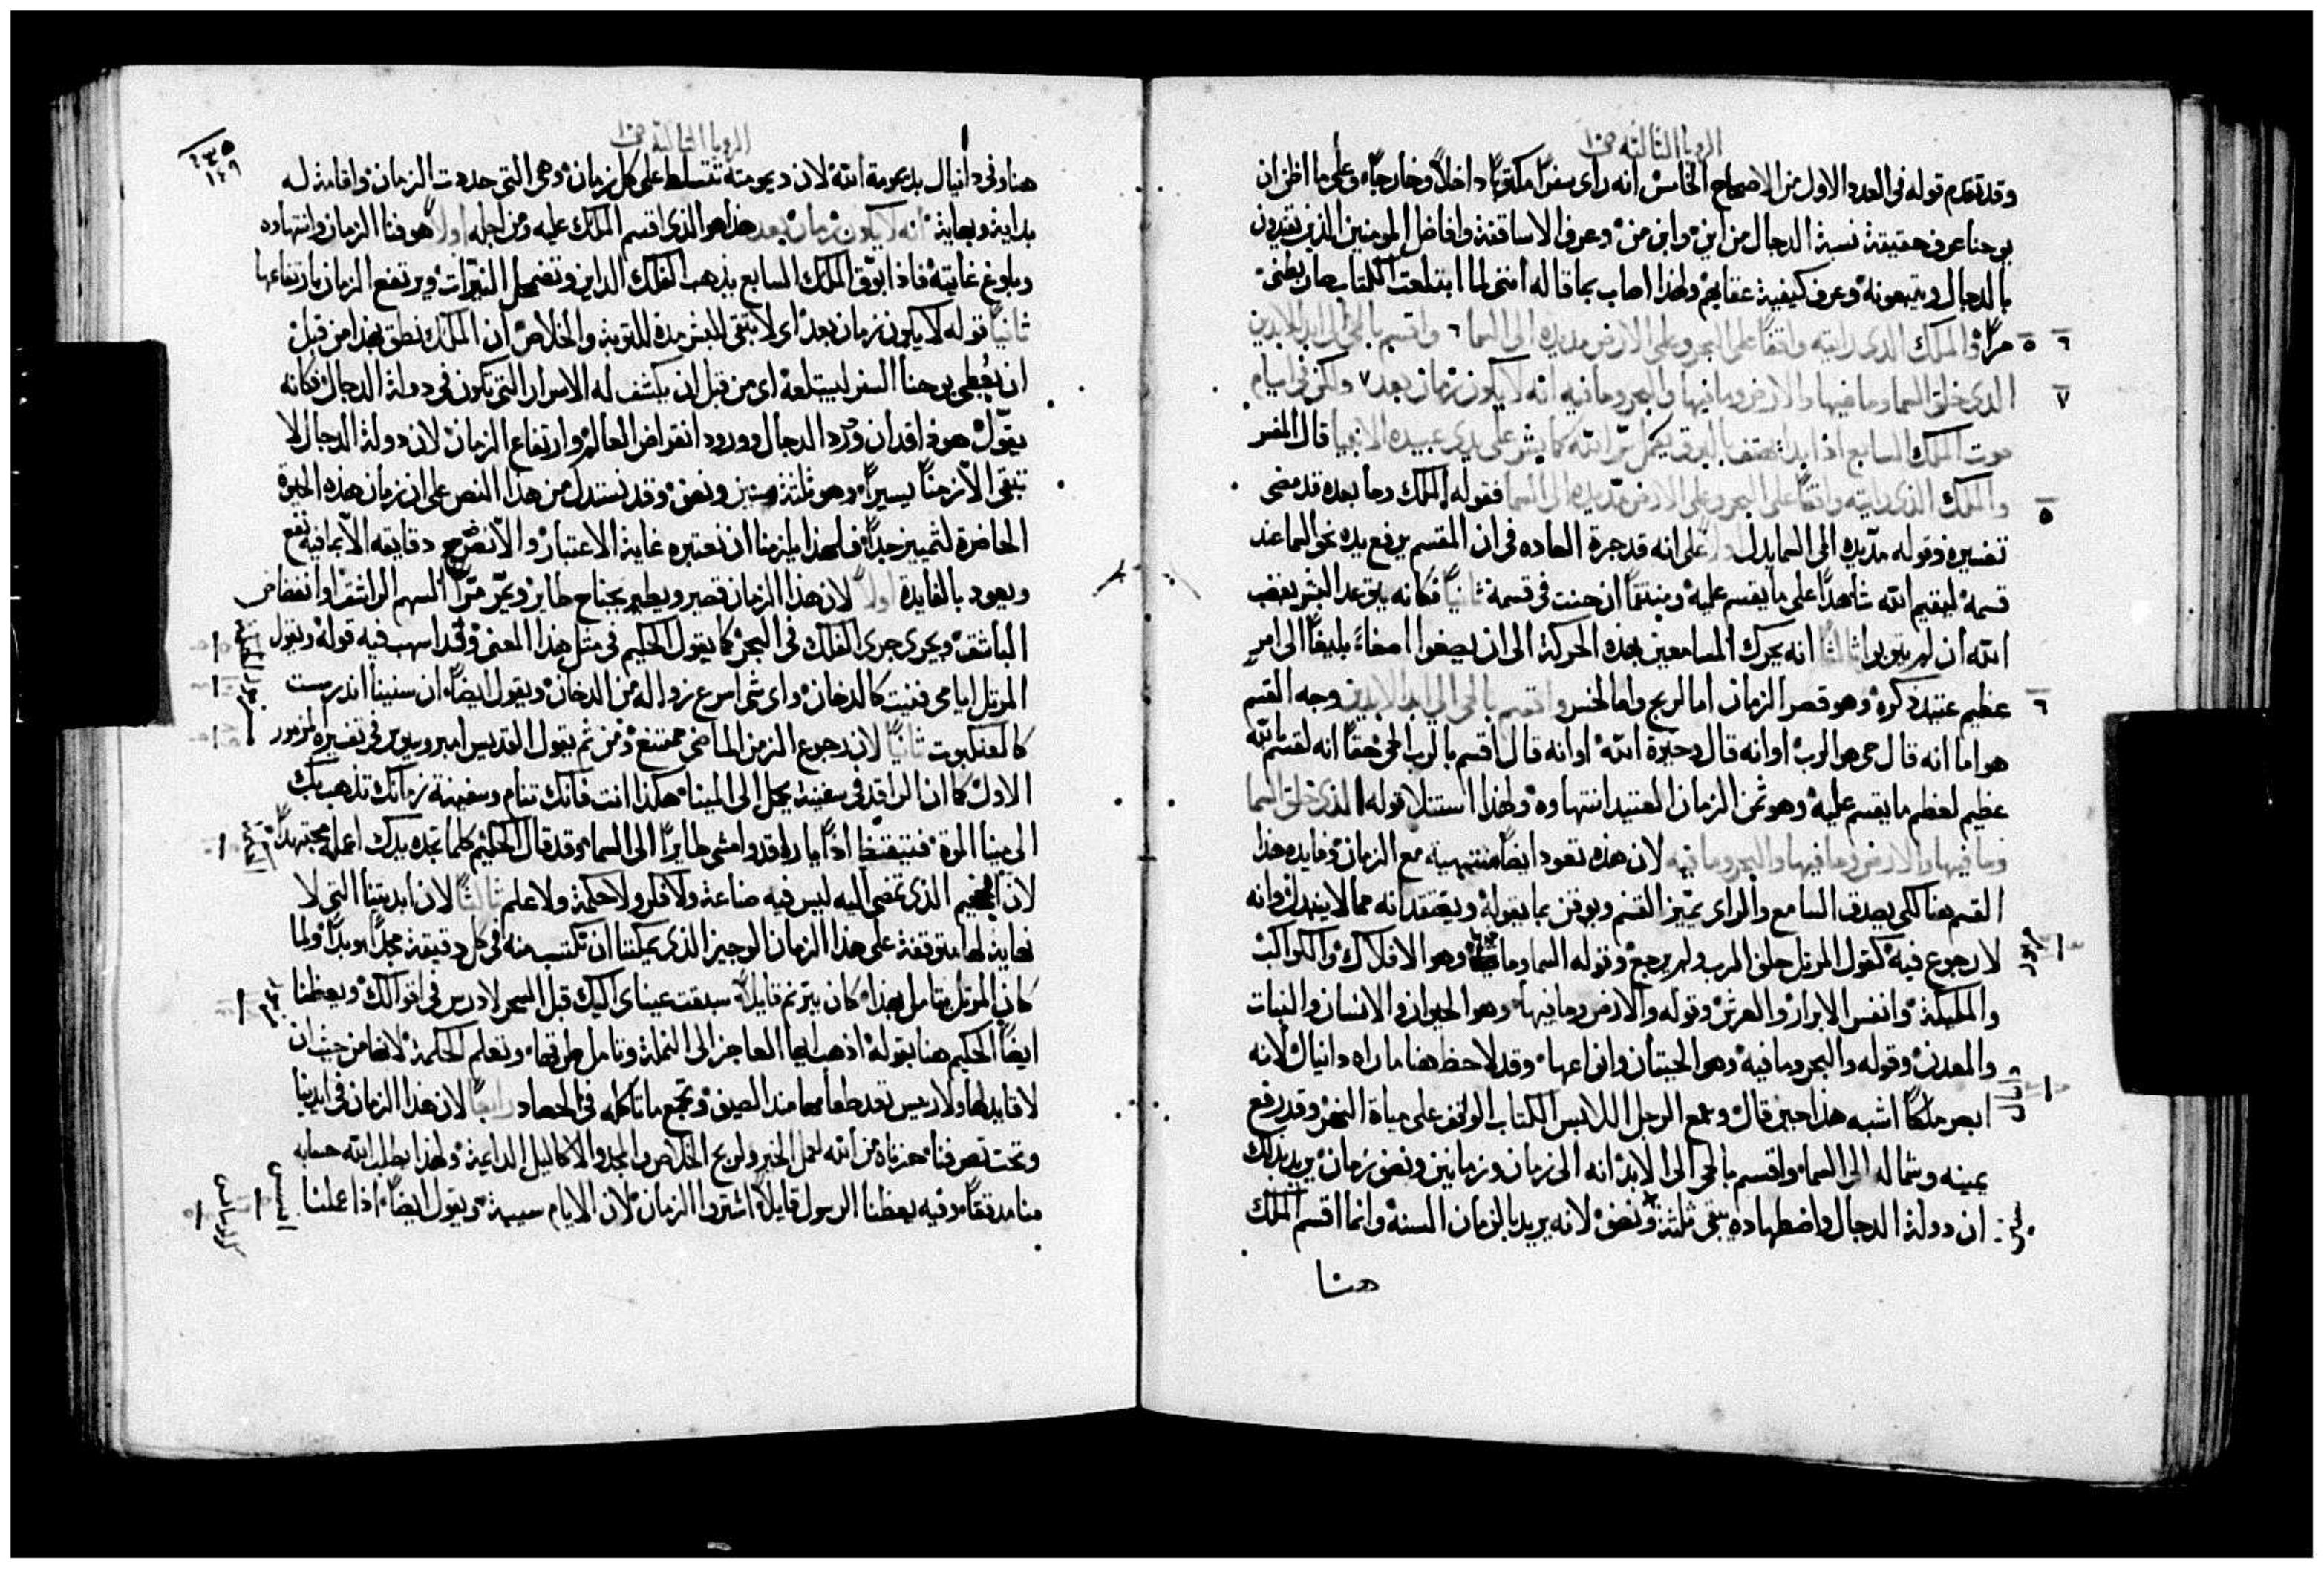 الرويا الثالثه ص١٠
وقد تقدم قوله في العدد الاول من الاصحاح الخامس انه راى سفرًا مكتوبًا داخلاً وخارجًا وعلى ما اظن ان
يوحنا عرف حقيقة نسبة الدجال من اين وابن من وعرف الاساقفة وافاضل المومنين الذين يقتدون
بالدجال ويتبعونه وعرف كيفية عقابهم ولهذا اصاب بما قاله اننى لما ابتلعت الكتاب صار بطنى
مرًا والملك الذى رايته واقفًا على البحر وعلى الارض مد يده الى السما ٦ واقسم بالحى الى ابد الابدين
الذى خلق السما وما فيها والارض وما فيها والبحر وما فيه انه لا يكون زمان بعد ٧ ولكن في ايام
صوت الملك السابع اذا بدا يهتف بالبوق يكمل سر الله كما بشر على يدى عبيده الانبيا قال المفسر
والملك الذى رايته واقفًا على البحر وعلى الارض مد يده الى السما فقوله الملك وما بعده قد مضى
تفسيره وقوله مد يده الى السما يدل اولاً على انه قد جرة العاده في ان المقسم يرفع يده نحو السما عند
قسمه ليقيم الله شاهدًا على ما يقسم عليه ومنتقمًا ان حنث في قسمه ثانيًا فكانه يتوعد البشر بغضب
الله ان لم يتوبوا ثالثًا انه يحرك السامعين بهذه الحركة الى ان يصغوا اصغاءً بليغًا الى امرٍ
عظيم عتيد ذكره وهو قصر الزمان اما لربح واما لخسر واقسم بالحى الى ابد الابدين وجه القسم
هو اما انه قال حى هو الرب او انه قال وحيوة الله او انه قال اقسم بالرب الحى حقًا انه لقسم بالله
عظيم لعظم ما يقسم عليه وهو ثمن الزمان العتيد انتهاوه ولهذا استتلا قوله الذى خلق السما
وما فيها والارض وما فيها والبحر وما فيه لان هذه تعود ايضًا منتهيه مع الزمان وفايده هذا
القسم هنا لكى يصدق السامع والراى تميّز القسم ويوقن بما يقوله ويعتقد انه مما لا يتبدل وانه
لا رجوع فيه كقول المرتل حلف الرب ولم يرجع وقوله السما وما فيها وهو الافلاك والكواكب
والمليكة وانفس الابرار والعرش وقوله والارض وما فيها وهو الحيوان والانسان والنبات
والمعدن وقوله والبحر وما فيه وهو الحيتان وانواعها وقد لاحظ هنا ما راه دانيال لانه
ابصر ملكًا اشبه هذا حين قال وسمع الرجل اللابس الكتاب الواقف على مياة النهر وقد رفع
يمينه وشماله الى السما واقسم بالحى الى الابد انه الى زمان وزمانين ونصف زمان يريد بذلك
ان دولة الدجال واضطهاده يبقى ثلثة ونصف لانه يريد بالزمان السنه وانما اقسم الملك
هنا
الرويا الثالثة ص١٠
هنا وفى دانيال بديمومة الله لان ديمومته تتسلط على كل زمان وهى التى حددت الزمان واقامة له
بداية ونهاية انه لا يكون زمان بعد هذا هو الذى اقسم الملك عليه ومن اجله اولاً هو فنا الزمان وانتهاوه
وبلوغ غايته فاذا بوّق الملك السابع يذهب الفلك الداير وتضمحل النيّرات ويرتفع الزمان بارتفاعها
ثانيًا قوله لا يكون زمان بعد اى لا يبقى للبشر مدة للتوبة والخلاص ان الملك نطق بهذا من قبل
ان يُعطى يوحنا السفر ليبتلعه اى من قبل ان يكشف له الاسرار التى تكون في دولة الدجال فكانه
يقول هوذا قد ان ورد الدجال وورود انقراض العالم وارتفاع الزمان لان دولة الدجال لا
تبقى الا زمنًا يسيرًا وهو ثلثة سنين ونصف وقد نستدل من هذا النص على ان زمان هذه الحيوة
الحاضرة لثمين جدًا فلهذا يلزمنا ان نعتبره غاية الاعتبار والا نضيّع دقايقه الا بما فيه نفع
ويعود بالفايدة اولاً لان هذا الزمان قصير ويطير بجناح طاير ويمرّ مرّا السهم الراشق او انقضاض
الباشق ويجرى جرى الفلك في البحر كما يقول الحكيم في مثل هذا المعنى وقد اسهب فيه قوله ويقول
المرتل ايامى فنيت كالدخان واى شى اسرع زواله من الدخان ويقول ايضًا ان سنينا اندرست
كالعنكبوت ثانيًا لان رجوع الزمن الماضى ممتنع ومن ثم يقول القديس امبروسيوس في تفسيره المزمور
الاول كما ان الراقد في سفينة يحمل الى المينا هكذا انت فانك تنام وسفينة زمانك تذهب بك
الى مينا الموة فتيقظ اذًا يا راقد وامشى طايرًا الى السما وقد قال الحكيم كلما تجده يدك اعمله مجتهدًا
لان الجحيم الذى تمضى اليه ليس فيه صناعة ولا فكر ولا حكمة ولا علم ثالثًا لان ابديتنا التى لا
نهاية لها متوقفة على هذا الزمان الوجيز الذى يمكننا ان نكتسب منه في كل دقيقة مجدًا موبدًا ولما
كان المرتل يتامل بهذا كان يترنم قايلاً سبقت عيناى اليك قبل السحر لادرس في اقوالك ويعظنا
ايضًا الحكيم هنا بقوله اذهب ايها العاجز الى النملة وتامل طرقها وتعلم الحكمة لانها من حيث ان
لا قايد لها ولا رييس تعد طعامها منذ الصيف وتجمع ما تاكله في الحصاد رابعًا لان هذا الزمان في ايدينا
وتحت تصرفنا حزناه من الله لعمل الخير ولربح الخلاص والمجد والاكاليل الدايمة ولهذا يطلب الله حسابه
منا مدققًا وفيه يعظنا الرسول قايلاً اشتروا الزمان لان الايام سيية ويقول ايضًا اذا عملنا